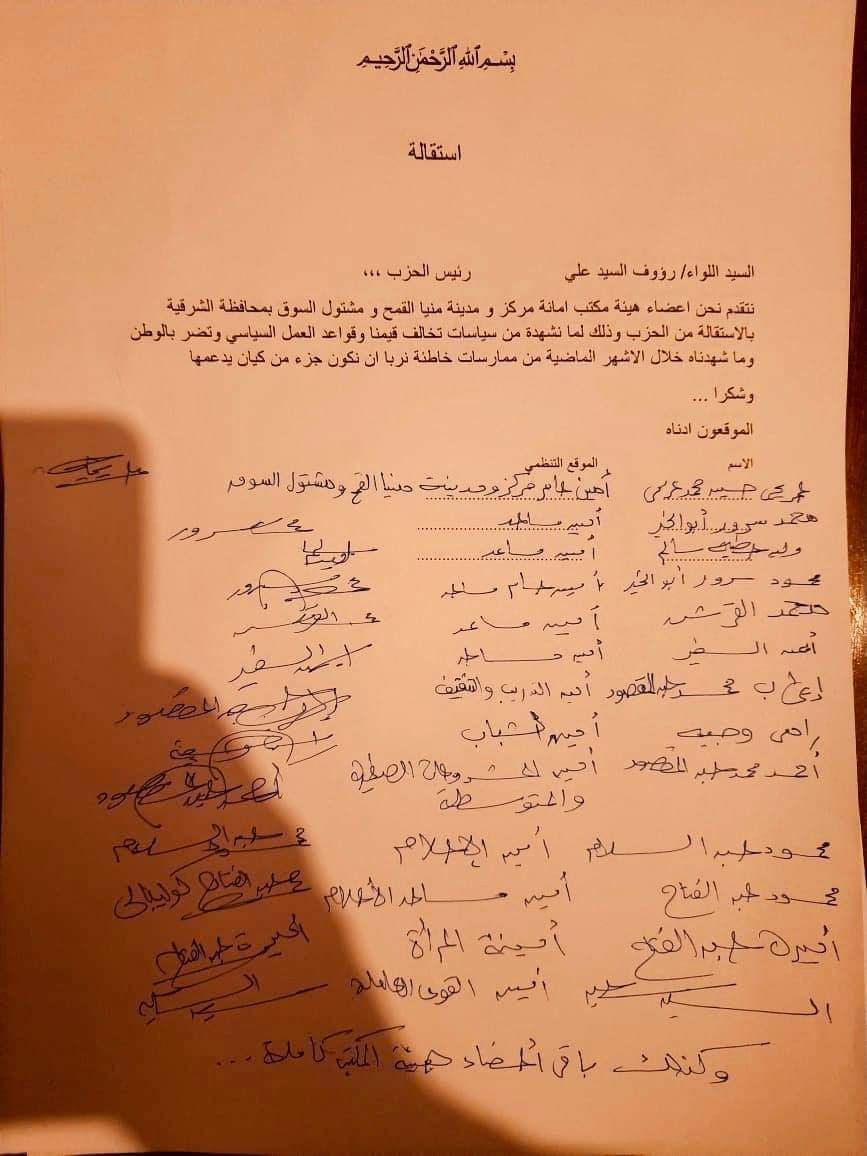 بِسْمِ اللهِ الرَّحْمَنِ الرَّحِيمِ
استقالة
السيد اللواء/ رؤوف السيد علي رئيس الحزب ،،،
نتقدم نحن اعضاء هيئة مكتب امانة مركز و مدينة منيا القمح و مشتول السوق بمحافظة الشرقية
بالاستقالة من الحزب وذلك لما نشهدة من سياسات تخالف قيمنا وقواعد العمل السياسي وتضر بالوطن
وما شهدناه خلال الاشهر الماضية من ممارسات خاطئة نربا ان نكون جزء من كيان يدعمها
وشكرا ...
الموقعون ادناه
الاسم الموقع التنظمي
حسين محمد مرسى أمين عام مركز ومدينة منيا القمح ومشتول السوق
محمد سرور أبو الخير أمين مساعد
سالم أمين مساعد
محمود سرور أبو الخير أمين عام مساعد
محمد القرشى أمين مساعد
أمين مساعد
محمد عبد المقصود أمين التدريب والتثقيف
رامى وجيه أمين الشباب
أحمد محمد عبد المقصود أمين المشروعات الصغيرة
والمتوسطة
محمود عبد السلام أمين الإعلام
محمود عبد الفتاح أمين مساعد الأعلام
أميرة عبد الفتاح أمينة المرأة
السيد أمين القوى العاملة
وكذلك باقى أعضاء هيئة المكتب كاملة ...